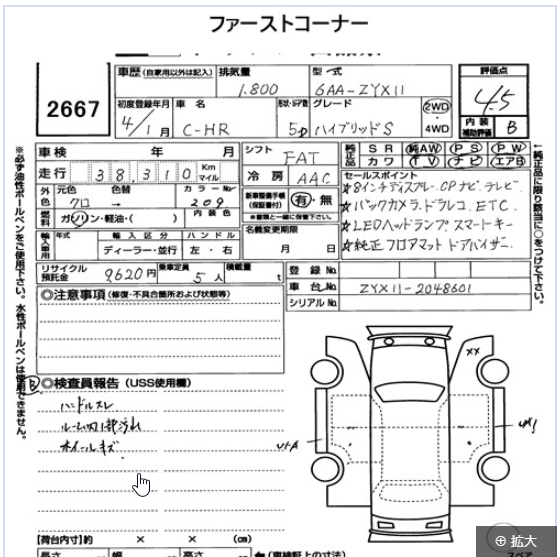 ファーストコーナー
2667
車歴 (自家用以外は記入)
排気量 1,800
型式 6AA-ZYX11
評価点 4.5
内装補助評価 B
初度登録年月 4/1月
車名 C-HR
形状・ドア数 5D
グレード ハイブリッドS
2WD・4WD
車検 年 月
シフト FAT
純正品 SR 純AW PS PW
カワ TV ナビ エアB
走行 38,310 Km マイル
冷房 AAC
セールスポイント
☆8インチディスプレーCPナビ・テレビ.
☆バックカメラ.ドラレコ.ETC.
☆LEDヘッドランプ スマートキー
☆純正フロアマット ドアバイザー
外色 元色 クロ → 色替 カラーNo. 209
ガソリン・軽油・( ) 内装色
新車整備手帳 (保証書付) 有・無
※書類と一緒に保管下さい。
名義変更期限 月 日
輸入車用 年式 輸入区分 ディーラー・並行 ハンドル 左・右
リサイクル預託金 9620円
乗車定員 5人
積載量 t
登録No.
車台No. ZYX11-2048601
シリアルNo.
◎注意事項 (修復・不具合箇所および状態等)
Ⓑ ◎検査員報告 (USS使用欄)
ハンドルスレ
ルーム内一部汚れ
ホイールキズ
XX
【荷台内寸】約 × × (cm)
長さ 幅 高さ ←(車検証上の寸法)
スペア
※必ず油性ボールペンをご使用下さい。水性ボールペンは使用できません。
純正品に限り該当に○をつけて下さい。
拡大